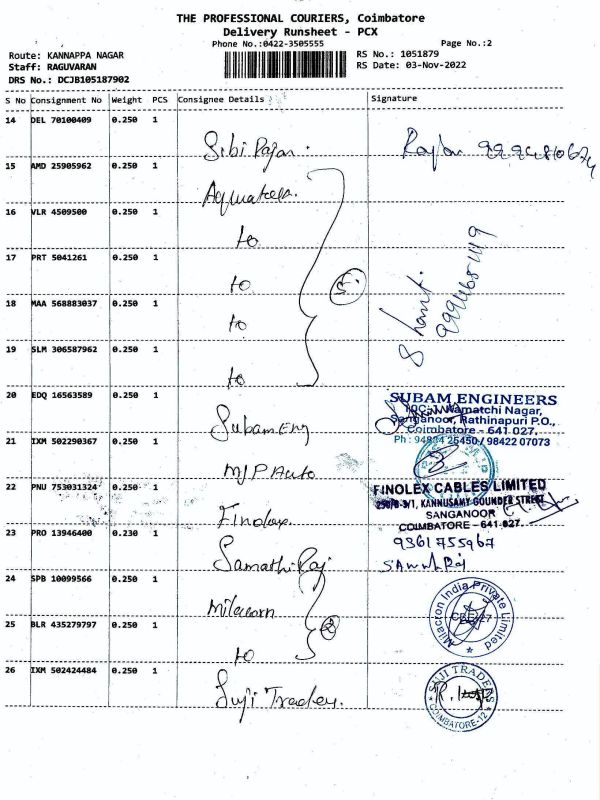 THE PROFESSIONAL COURIERS, Coimbatore
Delivery Runsheet - PCX
Phone No.:0422-3505555
Page No.:2
Route: KANNAPPA NAGAR
RS No.: 1051879
Staff: RAGUVARAN
RS Date: 03-Nov-2022
DRS No.: DCJB105187902
S No Consignment No Weight PCS Consignee Details Signature
14 DEL 70100409 0.250 1
Sibi Rajan.
15 AMD 25905962 0.250 1
16 VLR 4509500 0.250 1
to
17 PRT 5041261 0.250 1
to
5
18 MAA 568883037 0.250 1
to
19 SLM 306587962 0.250 1
to
20 EDQ 16563589 0.250 1
Subam Eng
SUBAM ENGINEERS
Kamatchi Nagar,
Sanganoor, Rathinapuri P.O.,
Coimbatore - 641 027.
Ph : 94884 25450 / 98422 07073
21 IXM 502290367 0.250 1
MJP Auto
22 PNU 753031324 0.250 1
Finolex
FINOLEX CABLES LIMITED
KANNUSAMY GOUNDER STREET
SANGANOOR
COIMBATORE - 641 027.
23 PRO 13946400 0.230 1
Samathi Raj
9361755967
24 SPB 10099566 0.250 1
Milacron
Milacron India Private Limited
CBE-27
25 BLR 435279797 0.250 1
to
2
26 IXM 502424484 0.250 1
Suji Trades.
SUJI TRADERS
COIMBATORE-12